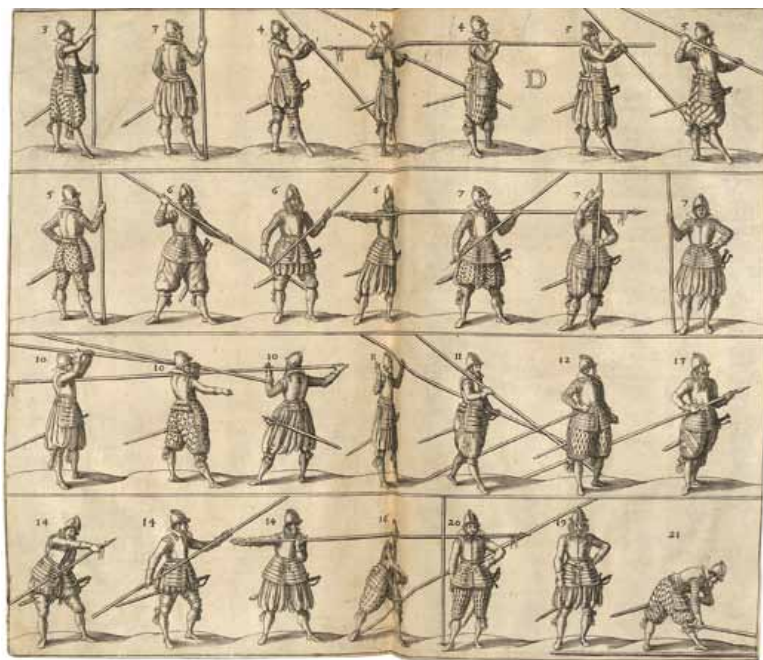 3 7 4 4 4 5 5
D
5 6 6 6 7 7 7
10 10 10 11 11 12 17
14 14 14 16 20 19 21